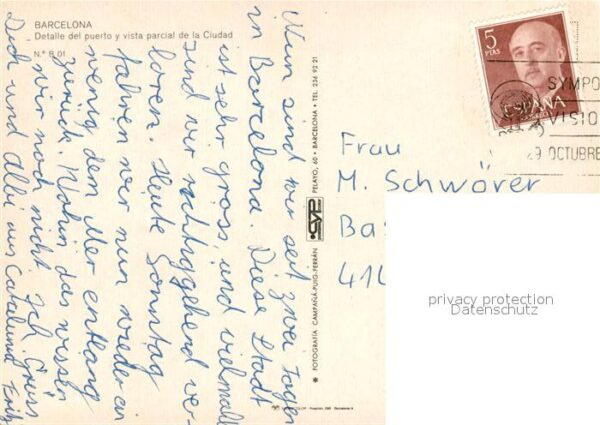 BARCELONA
Detalle del puerto y vista parcial de la Ciudad
N.º B 01
Nun sind wir seit zwei Tagen
in Barcelona. Diese Stadt
ist sehr gross, und vielmals
sind wir richtiggehend ver-
loren. Heute Sonntag
fahren wir nun wieder ein
wenig dem Meer entlang
zurück. Wohin das wissen
wir noch nicht. Ich Grüss
Dich und Alli aus Catalunia Fritz
FOTOGRAFÍA CAMPAÑÁ-PUIG-FERRÁN
CYP
PELAYO, 60 • BARCELONA • TEL. 236 92 21
5
PTAS
ESPAÑA
SYMPO
VISIO
29 OCTUBRE
Frau
M. Schwörer
Bas
414
privacy protection
Datenschutz